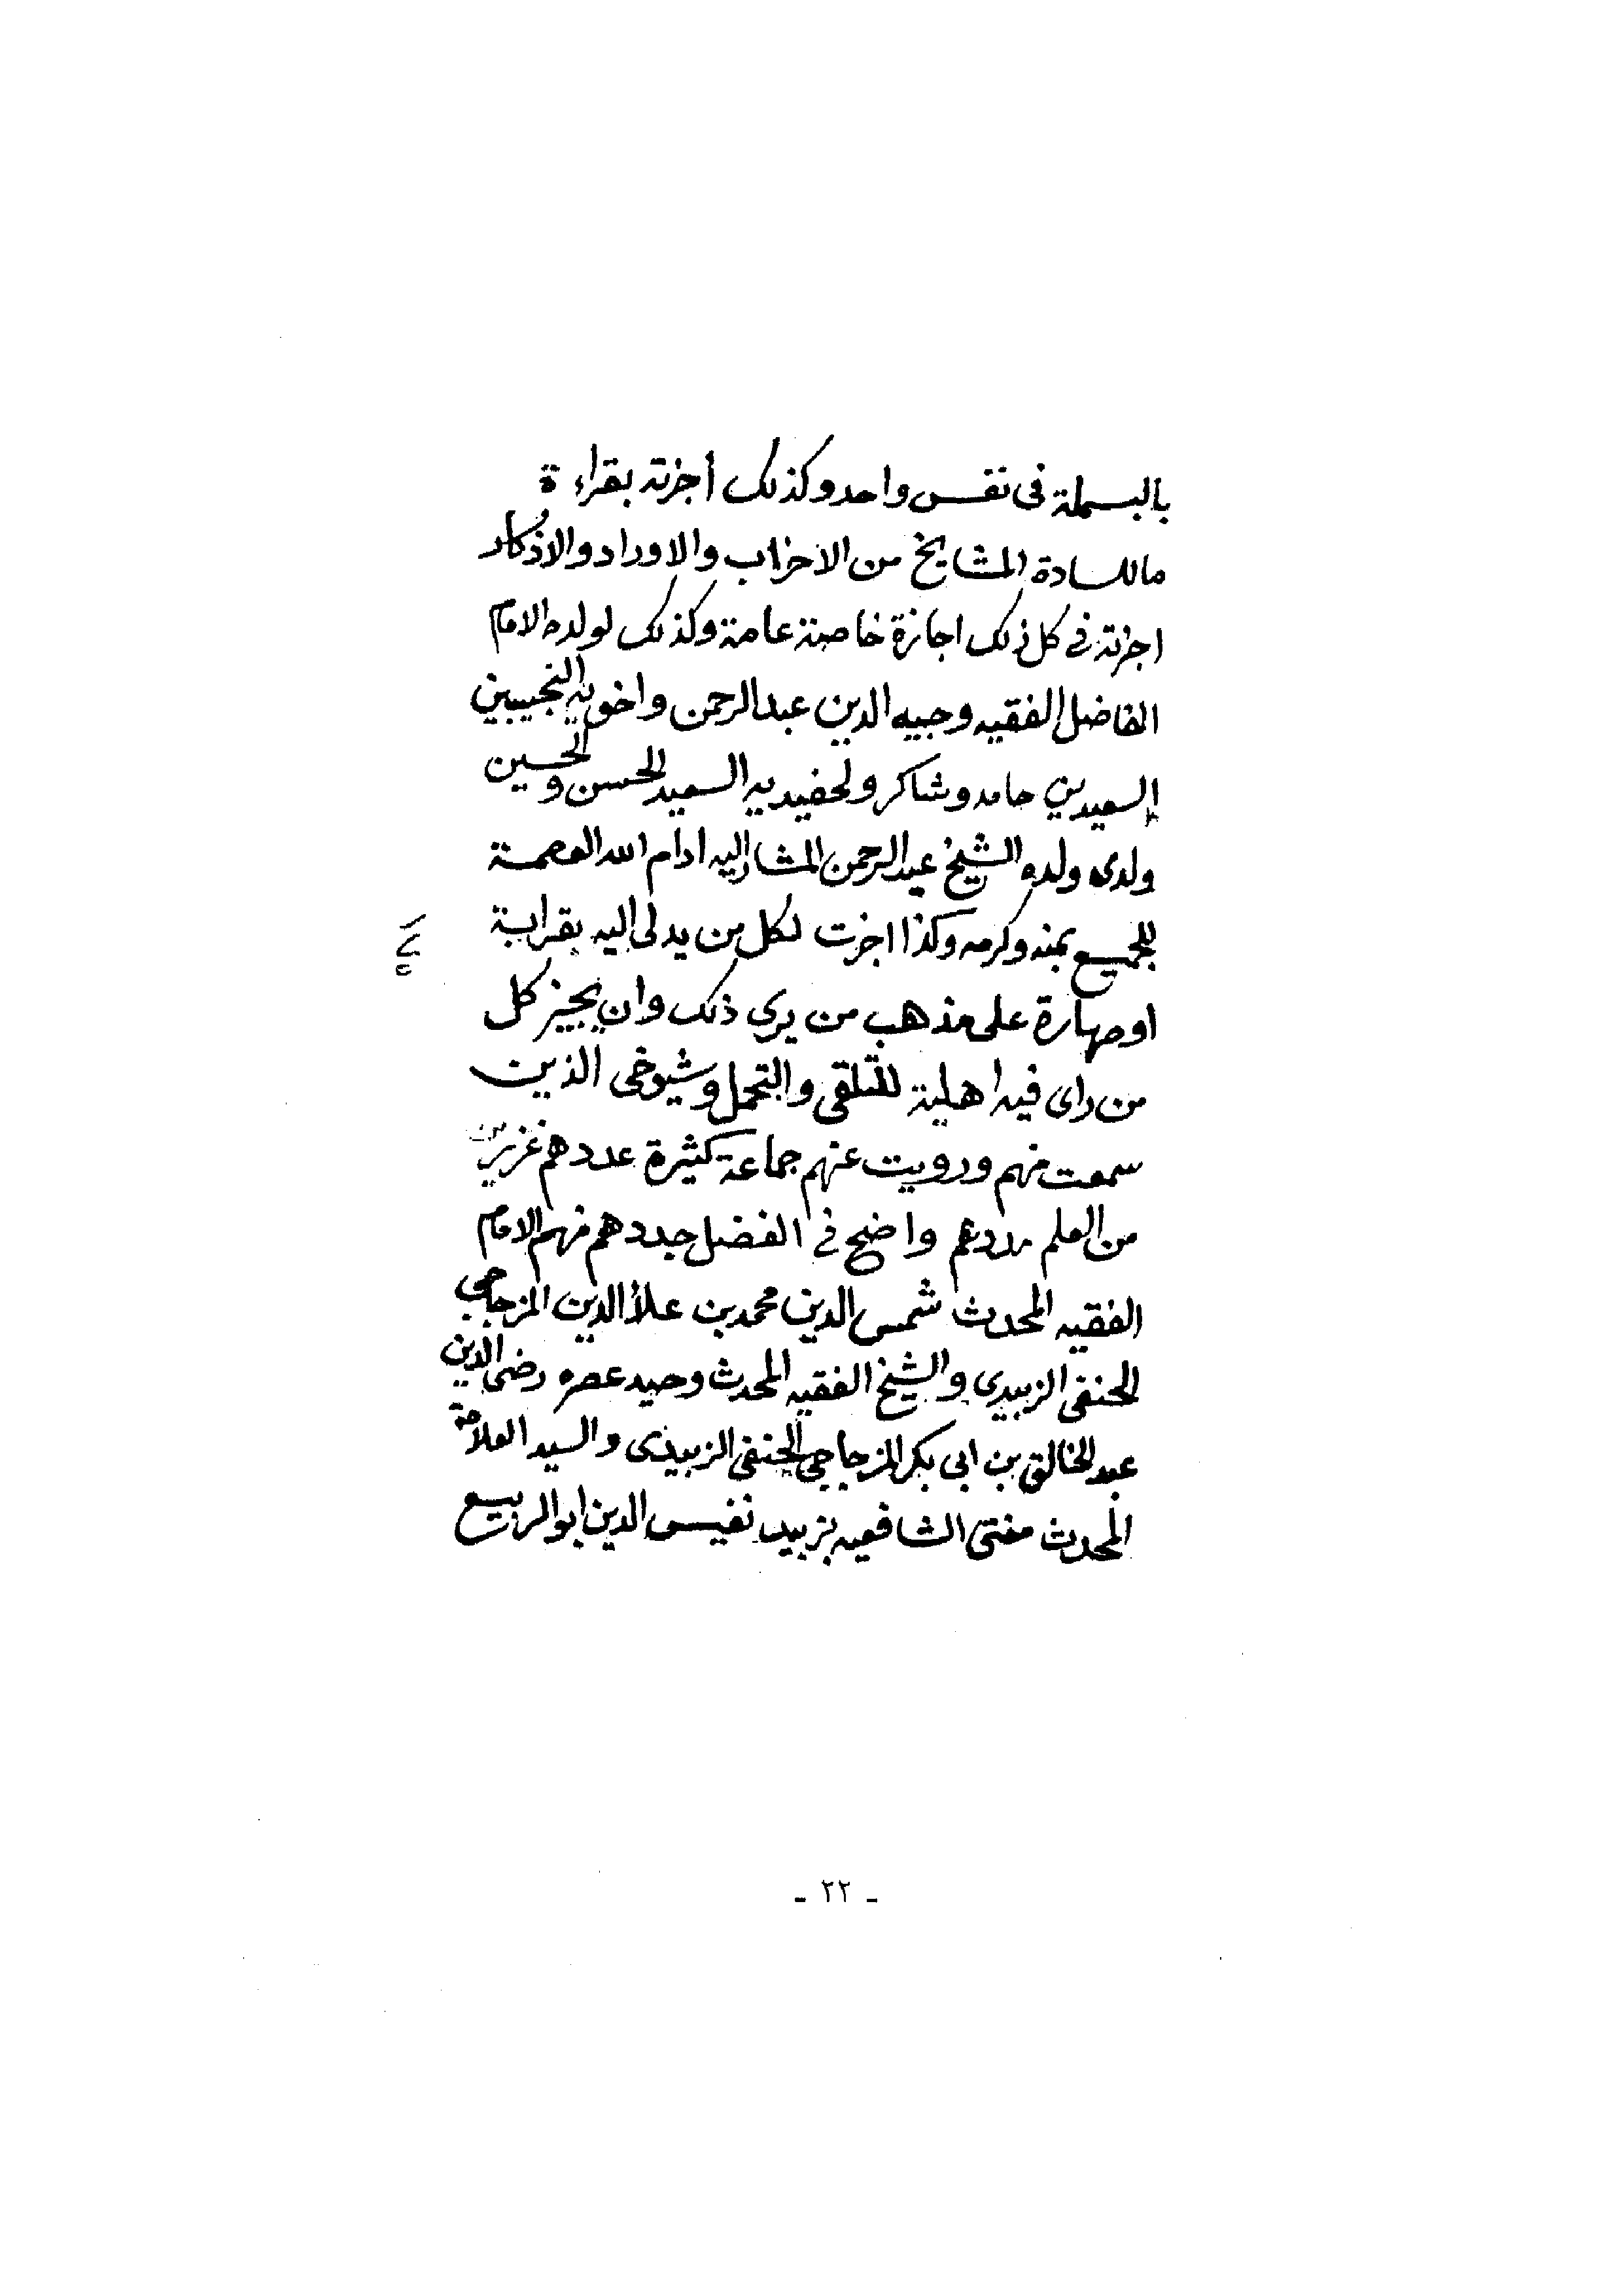 بالبسملة فى نفس واحد وكذلك أجزته بقراءة
ما للسادة المشايخ من الاحزاب والاوراد والاذكار
اجزته في كل ذلك اجازة خاصة عامة وكذلك لولده الامام
الفاضل الفقيه وجيه الدين عبد الرحمن واخويه النجيبين
السعيدين حامد وشاكر ولحفيديه السعيد الحسن والحسين
ولدى ولده الشيخ عبد الرحمن المشار اليه ادام الله العصمة
للجميع بمنه وكرمه وكذا اجزت لكل من يدلى اليه بقرابة
او صهارة على مذهب من يرى ذلك وان يجيز كل
من راى فيه اهلية للتلقى والتحمل وشيوخى الذين
سمعت منهم ورويت عنهم جماعة كثيرة عددهم غزير
من العلم مددهم واضح في الفضل جددهم منهم الامام
الفقيه المحدث شمس الدين محمد بن علاء الدين المزجاجي
الحنفى الزبيدى والشيخ الفقيه المحدث وحيد عصره رضى الدين
عبد الخالق بن ابى بكر المزجاجي الحنفى الزبيدى والسيد العلامة
المحدث مفتى الشافعيه بزبيد نفيس الدين ابو الربيع
- ٢٢ -